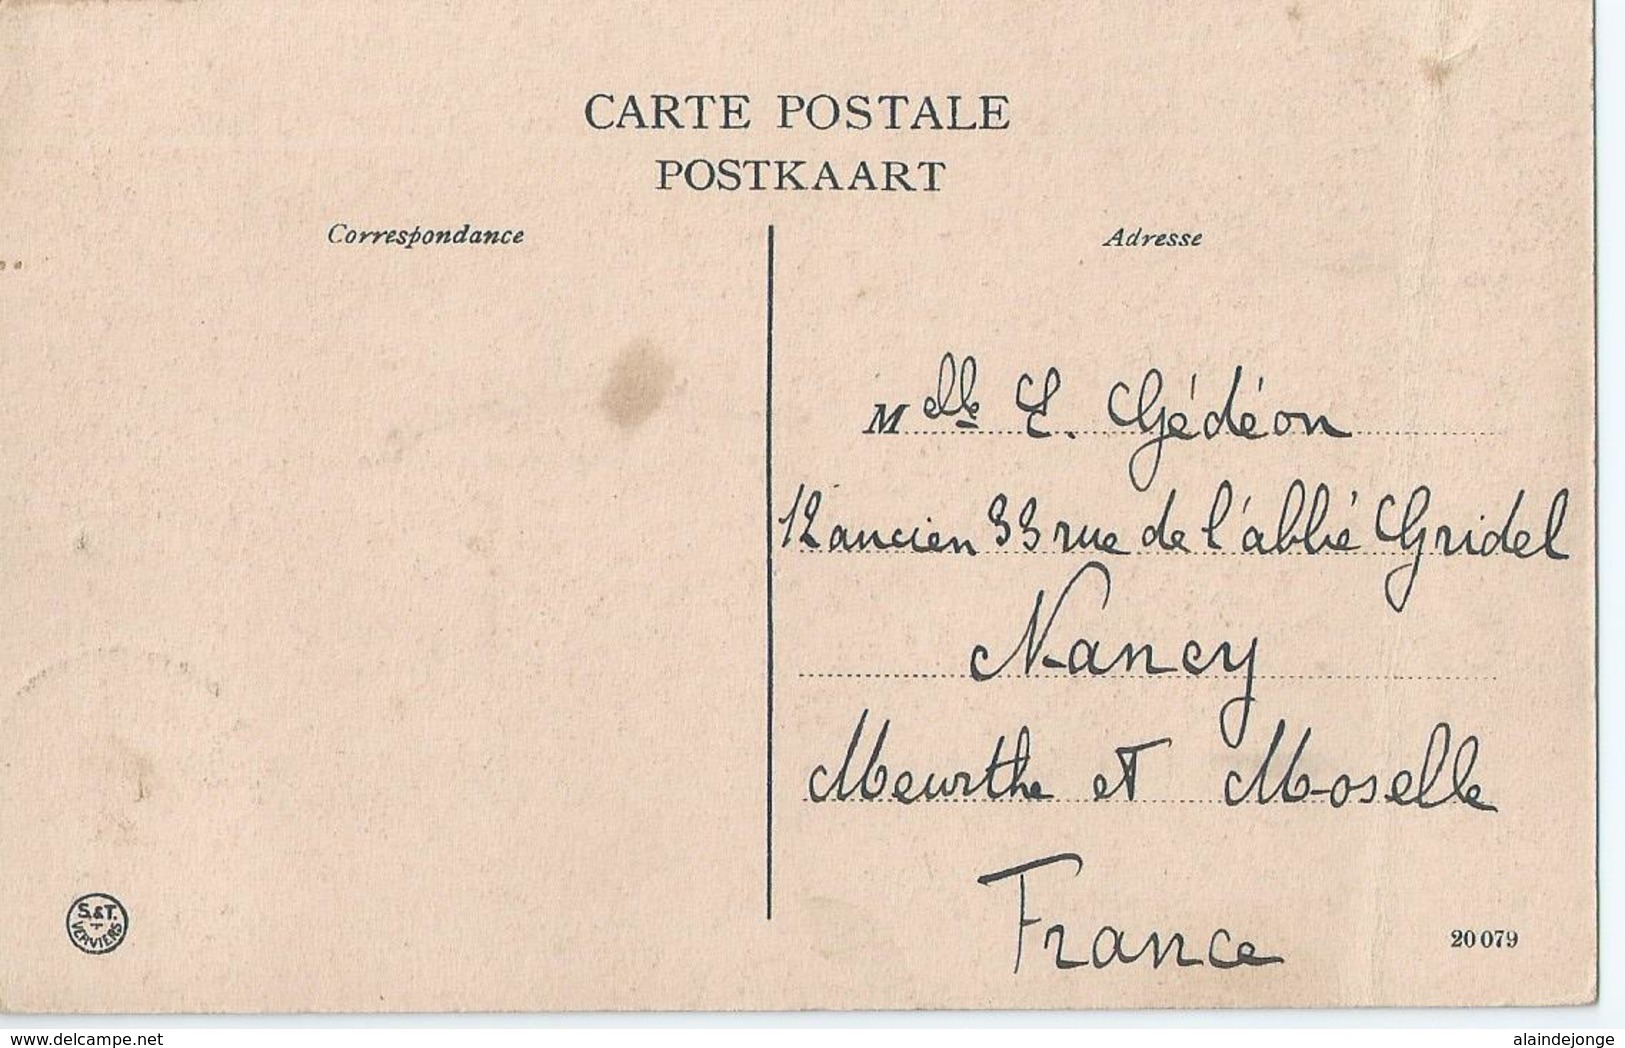 CARTE POSTALE
POSTKAART
Correspondance
Adresse
Melle E. Gédéon
12 ancien 33 rue de l'abbé Gridel
Nancy
Meurthe et Moselle
France
S.&T.
VERVIERS
20079
delcampe.net
alaindejonge